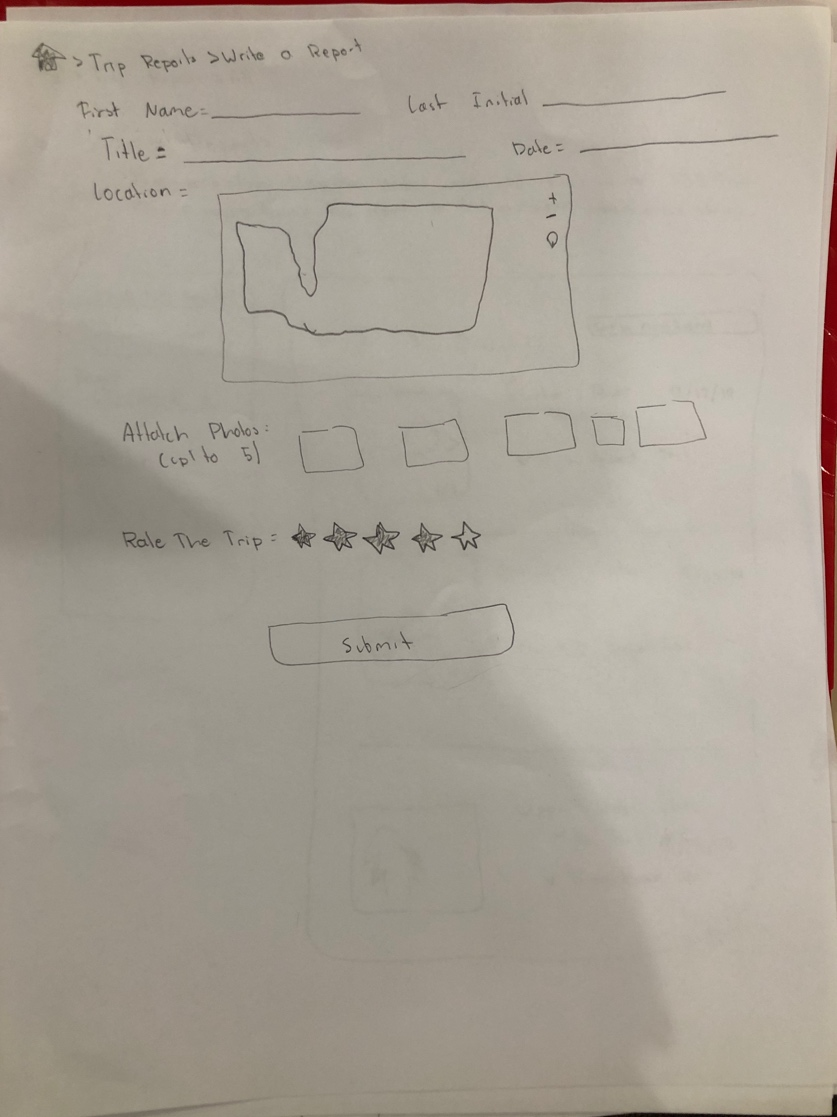 > Trip Reports > Write a Report
First Name= Last Initial
Title = Date=
Location =
+
-
Attatch Photos:
(up to 5)
Rate The Trip =
Submit